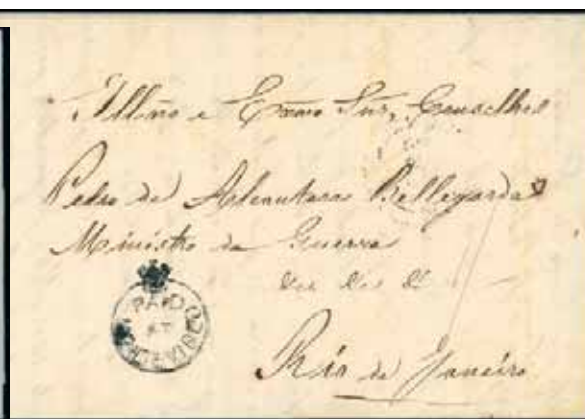 Illmo e Exmo Snr. Conselhro
Pedro de Alcantara Bellegarde
Ministro da Guerra
&a &a &a
Rio de Janeiro
PAID
AT